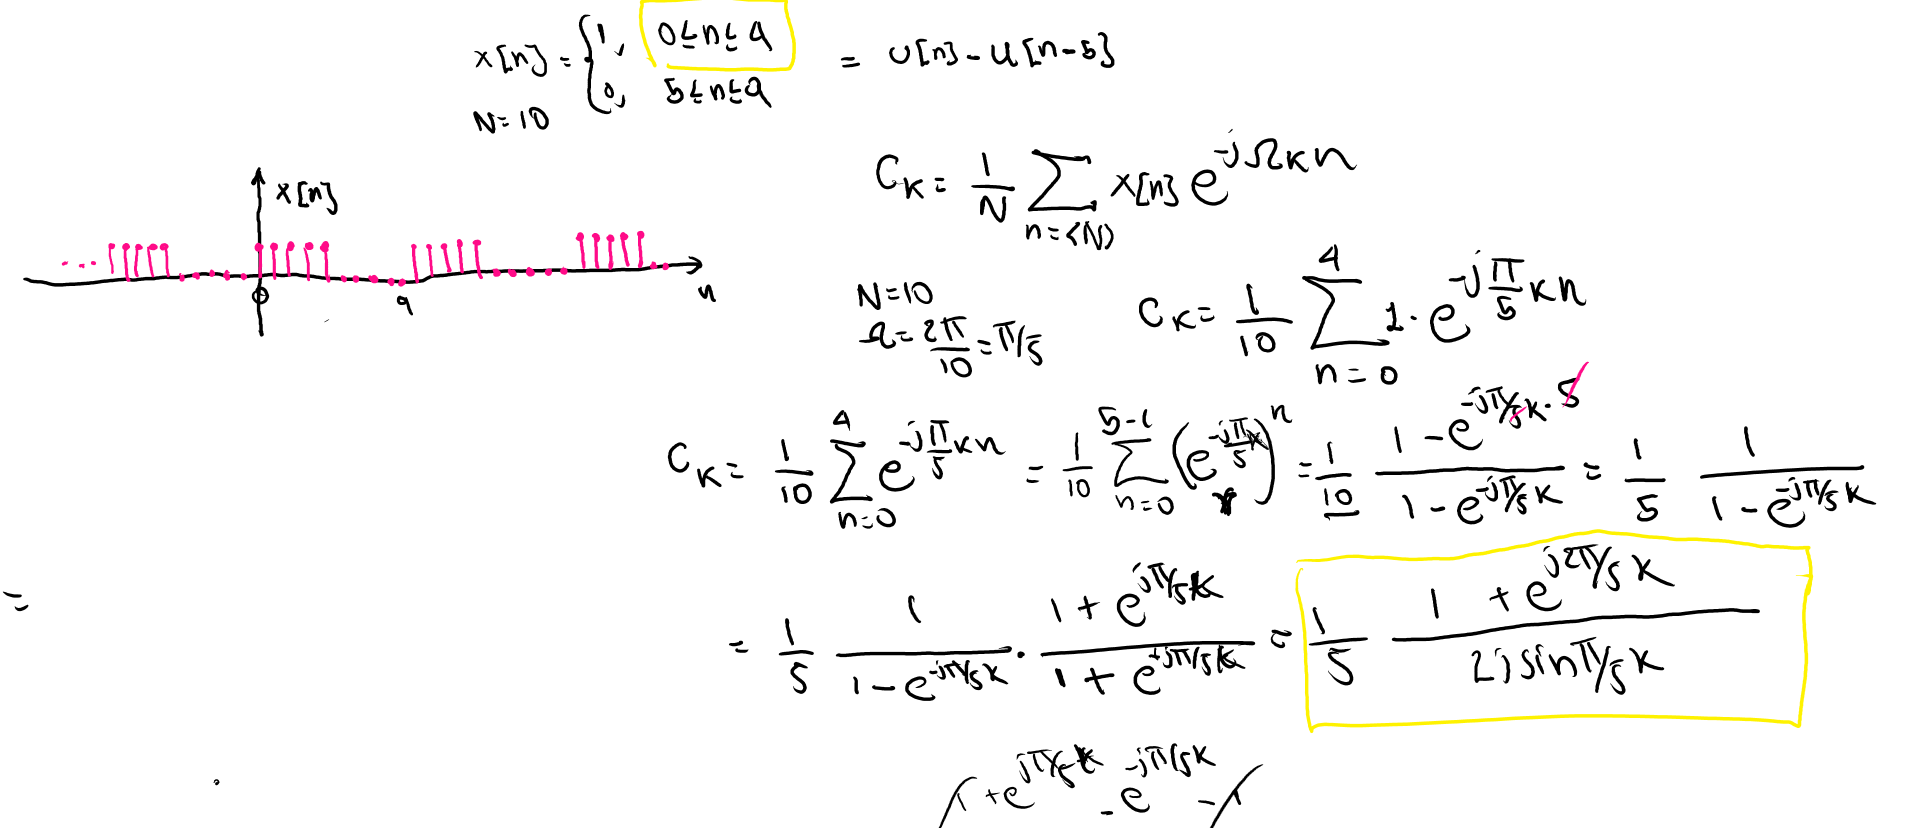 x[n] = { 1, 0≤n≤4 = u[n] - u[n-5]
0, 5≤n≤9
N=10
x[n]
0 9 n
C_K = 1/N ∑_{n=<N>} x[n] e^{-jΩKn}
N=10
Ω = 2π/10 = π/5
C_K = 1/10 ∑_{n=0}^{4} 1·e^{-jπ/5 Kn}
C_K = 1/10 ∑_{n=0}^{4} e^{-jπ/5 Kn} = 1/10 ∑_{n=0}^{5-1} (e^{-jπ/5 K})^n = 1/10 (1 - e^{-jπ/5 K·5})/(1 - e^{-jπ/5 K}) = 1/5 1/(1 - e^{-jπ/5 K})
=
= 1/5 1/(1 - e^{-jπ/5 K}) · (1 + e^{jπ/5 K})/(1 + e^{+jπ/5 K}) = 1/5 (1 + e^{j2π/5 K})/(2j sin π/5 K)
1 + e^{jπ/5 K} - e^{-jπ/5 K} - 1